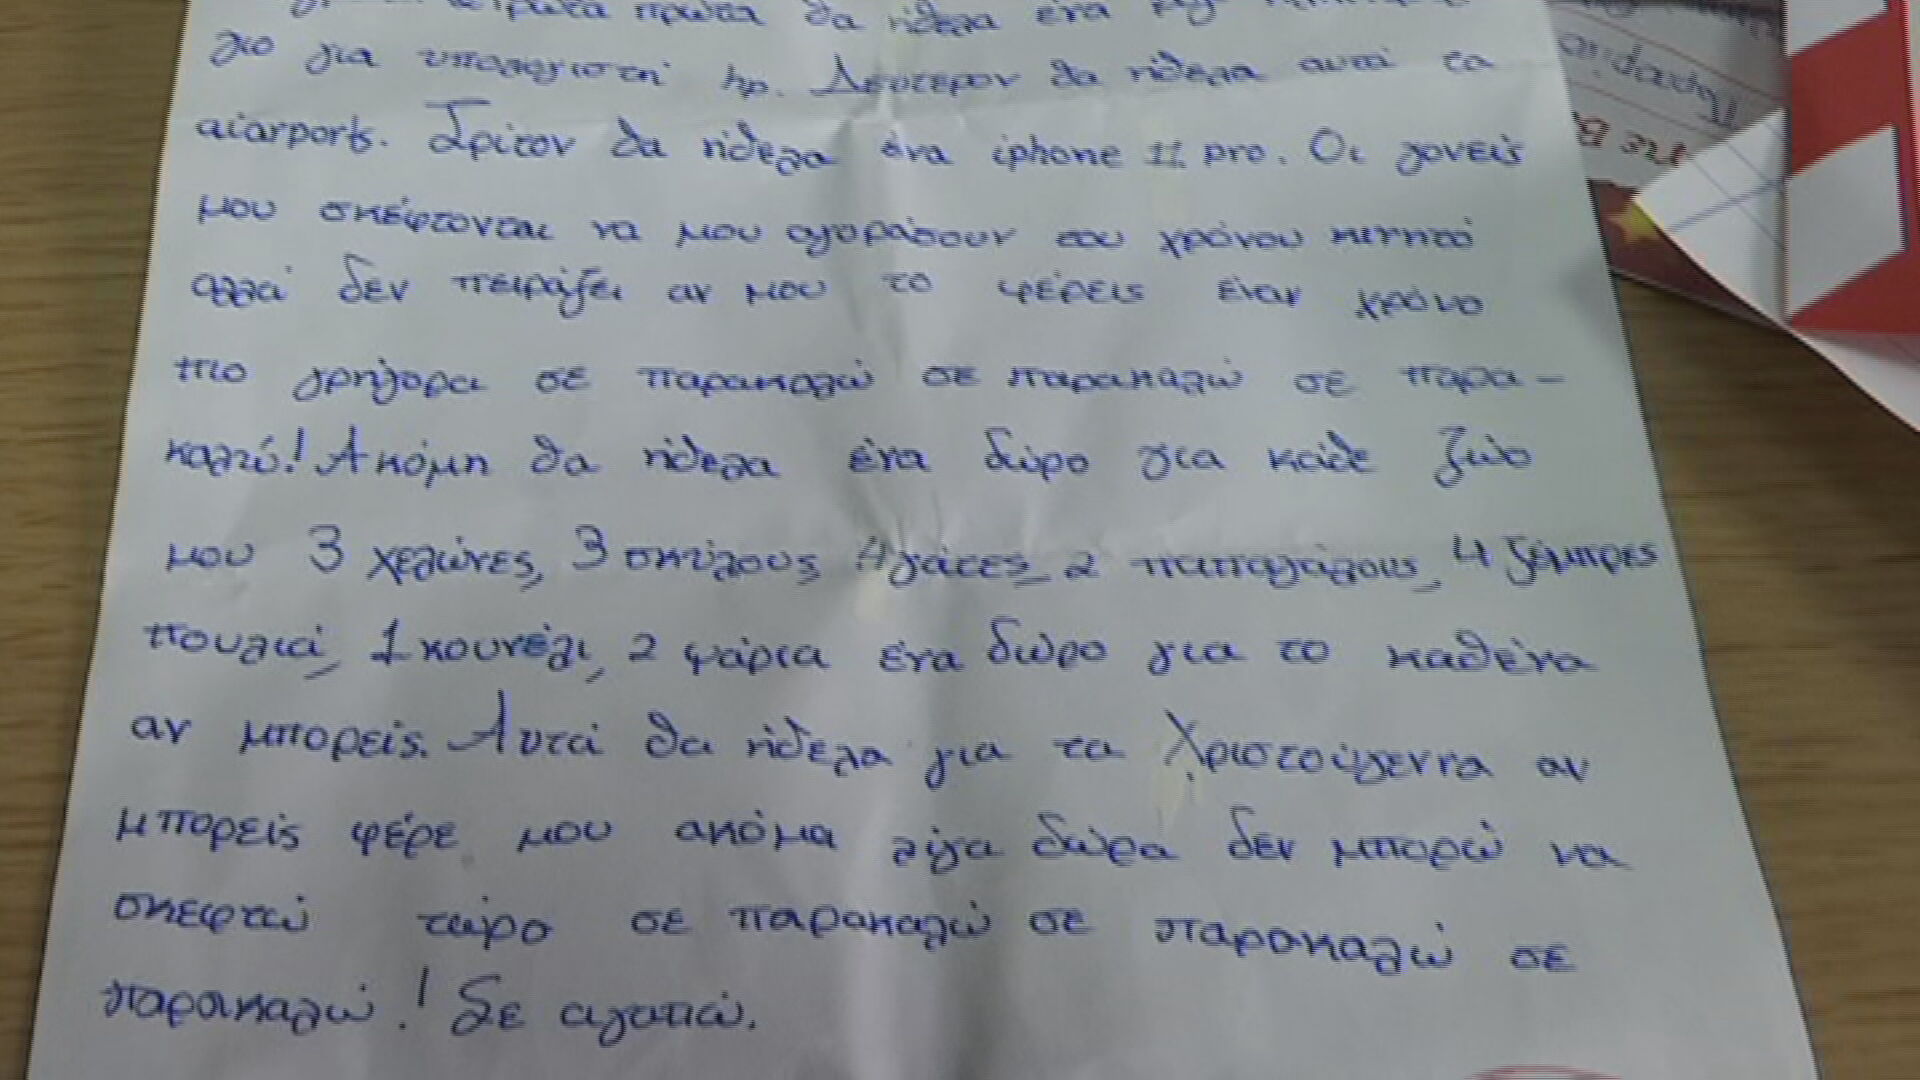 πρώτα θα ήθελα ένα
γιο για υπολογιστή hp. Δεύτερον θα ήθελα αυτά τα
aiarports. Τρίτον θα ήθελα ένα iphone 11 pro. Οι γονείς
μου σκέφτονται να μου αγοράσουν του χρόνου κινητό
αλλά δεν πειράζει αν μου το φέρεις έναν χρόνο
πιο γρήγορα σε παρακαλώ σε παρακαλώ σε παρα-
καλώ! Ακόμη θα ήθελα ένα δώρο για κάθε ζώο
μου 3 χελώνες, 3 σκύλους 4 γάτες, 2 παπαγάλους, 4 ζέμπρες
πουλιά, 1 κουνέλι, 2 ψάρια ένα δώρο για το καθένα
αν μπορείς. Αυτά θα ήθελα για τα Χριστούγεννα αν
μπορείς φέρε μου ακόμα λίγα δώρα δεν μπορώ να
σκεφτώ τώρο σε παρακαλώ σε παρακαλώ σε
παρακαλώ! Σε αγαπώ.